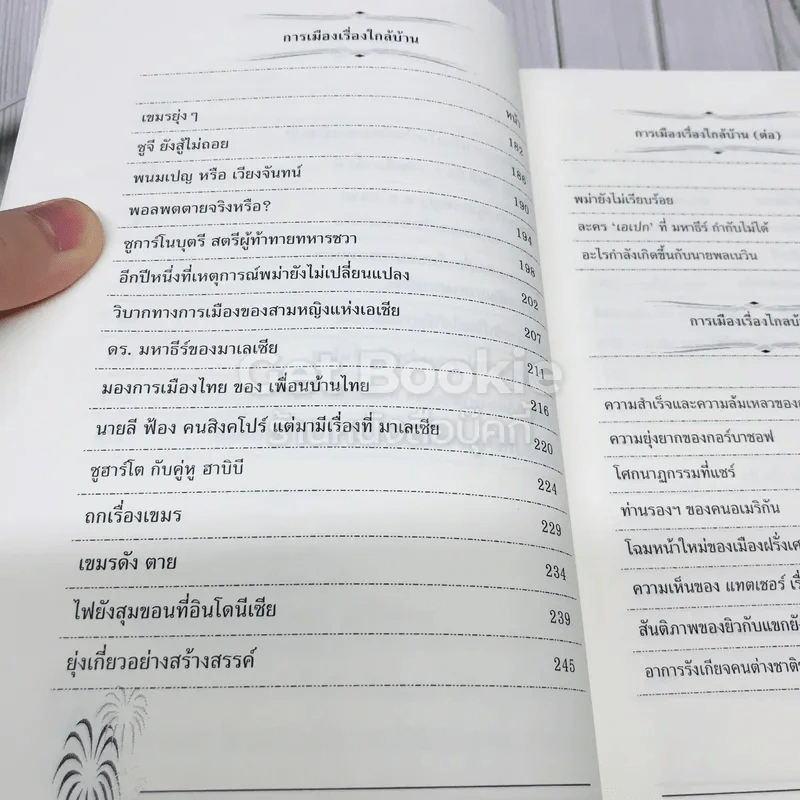 การเมืองเรื่องใกล้บ้าน
หน้า
เขมรยุ่ง ๆ 182
ซูจี ยังสู้ไม่ถอย 186
พนมเปญ หรือ เวียงจันทน์ 190
พอลพตตายจริงหรือ? 194
ซูการ์โนบุตรี สตรีผู้ท้าทายทหารชวา 198
อีกปีหนึ่งที่เหตุการณ์พม่ายังไม่เปลี่ยนแปลง 202
วิบากทางการเมืองของสามหญิงแห่งเอเชีย 207
ดร. มหาธีร์ของมาเลเซีย 211
มองการเมืองไทย ของ เพื่อนบ้านไทย 216
นายลี ฟ้อง คนสิงคโปร์ แต่มามีเรื่องที่ มาเลเซีย 220
ซูฮาร์โต กับคู่หู ฮาบิบี 224
ถกเรื่องเขมร 229
เขมรดัง ตาย 234
ไฟยังสุมขอนที่อินโดนีเซีย 239
ยุ่งเกี่ยวอย่างสร้างสรรค์ 245
การเมืองเรื่องใกล้บ้าน (ต่อ)
พม่ายังไม่เรียบร้อย
ละคร ‘เอเปก’ ที่ มหาธีร์ กำกับไม่ได้
อะไรกำลังเกิดขึ้นกับนายพลเนวิน
การเมืองเรื่องไกล
ความสำเร็จและความล้มเหลวของ
ความยุ่งยากของกอร์บาชอฟ
โศกนาฏกรรมที่แชร์
ท่านรองฯ ของคนอเมริกัน
โฉมหน้าใหม่ของเมืองฝรั่งเศ
ความเห็นของ แทตเชอร์ เรื่
สันติภาพของยิวกับแขกยัง
อาการรังเกียจคนต่างชาติ
Get Bookie
ร้านหนังสือบุ๊คกี้